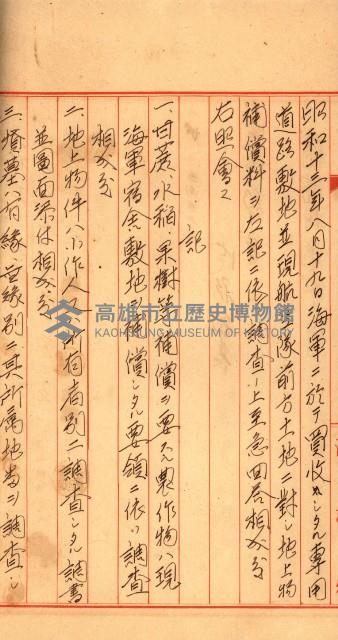 昭和十三年八月十九日海軍ニ於テ買收セラレタル專用
道路敷地並現航空隊前方土地ニ對シ地上物
補償料ヲ左記ニ依リ調査ノ上至急回答相成度
右照會ス
記
一、甘蔗、水稻、果樹等補償ヲ要スル農作物ハ現
海軍宿舍敷地ニ補償シタル要領ニ依リ調査
相成度
二、地上物件ハ小作人又ハ所有者別ニ調査シタル調書
並圖面添付相成度
三、墳墓ハ有緣、無緣別ニ其所屬地番ヲ調査シ
高雄市立歷史博物館
KAOHSIUNG MUSEUM OF HISTORY